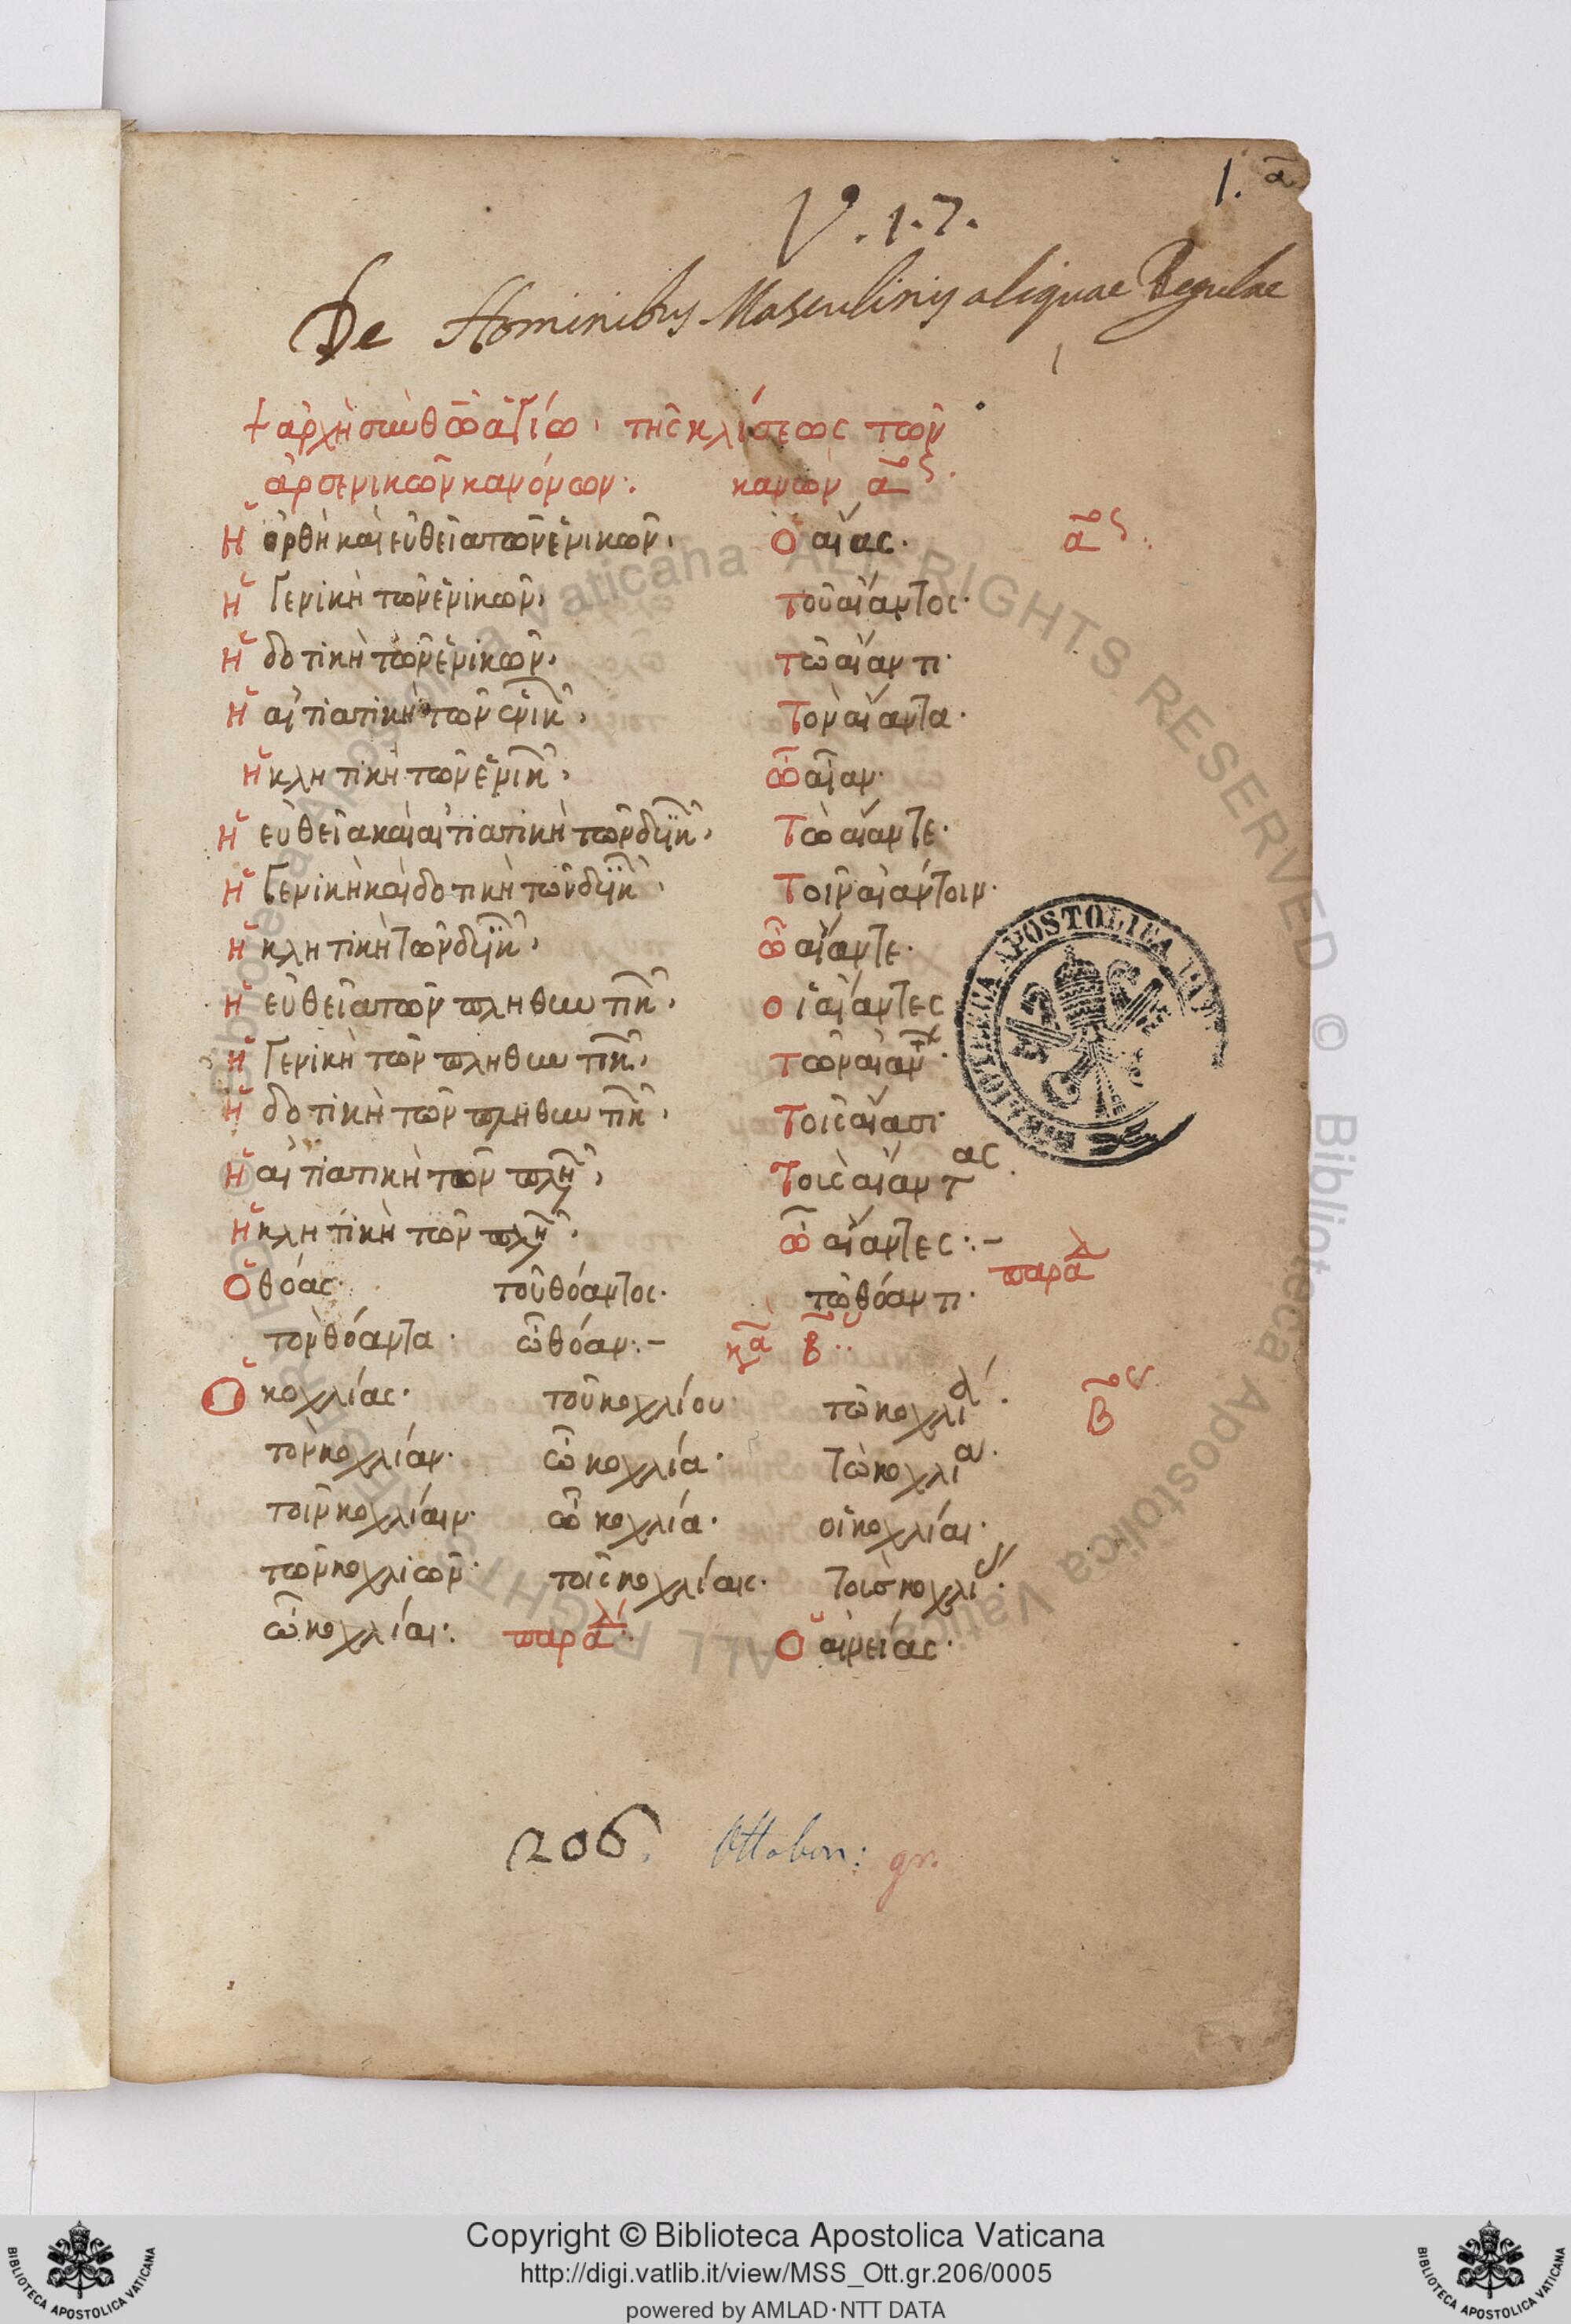 1. α
V. 1. 7.
De Nominibus Masculinis aliquae Regulae
+ ἀρχὴ σὺν θῶ ἁγίω· τῆς κλίσεως τῶν
ἀρσενικῶν κανόνων: κανὼν α ος.
Ἡ ὀρθὴ καὶ εὐθεῖα τῶν ἑνικῶν, Ὁ αἴας. α ος:
Ἡ γενικὴ τῶν ἑνικῶν, τοῦ αἴαντος.
Ἡ δοτικὴ τῶν ἑνικῶν, τῶ αἴαντι.
Ἡ αἰτιατικὴ τῶν ἑνικ, Τὸν αἴαντα.
Ἡ κλητικὴ τῶν ἑνικ, ὦ αἶαν.
Ἡ εὐθεῖα καὶ αἰτιατικὴ τῶν δυϊκ, Τὼ αἴαντε.
Ἡ γενικὴ καὶ δοτικὴ τῶν δυϊκ, Τοῖν αἰάντοιν.
Ἡ κλητικὴ τῶν δυϊκ, ὦ αἴαντε.
Ἡ εὐθεῖα τῶν πληθυντικ, οἱ αἴαντες
Ἡ γενικὴ τῶν πληθυντικ, τῶν αἰάντ.
Ἡ δοτικὴ τῶν πληθυντικ, Τοῖς αἴασι.
Ἡ αἰτιατικὴ τῶν πλη, Τοὺς αἴαντας.
Ἡ κλητικὴ τῶν πλη. ὦ αἴαντες:-
Ὁ θόας. τοῦ θόαντος. τῶ θόαντι. παραλ
τὸν θόαντα. ὦ θόαν:- κα β:
Ὁ κοχλίας. τοῦ κοχλίου. τῶ κοχλία. β ος
τὸν κοχλίαν. ὦ κοχλία. Τὼ κοχλία.
τοῖν κοχλίαιν. ὦ κοχλία. οἱ κοχλίαι.
τῶν κοχλιῶν. τοῖς κοχλίαις. Τοὺς κοχλί.
ὦ κοχλίαι: παραλ: Ὁ αἰνείας.
206. Ottobon: gr.
BIBLIOTECA APOSTOLICA
Copyright © Biblioteca Apostolica Vaticana
http://digi.vatlib.it/view/MSS_Ott.gr.206/0005
powered by AMLAD·NTT DATA
BIBLIOTECA APOSTOLICA VATICANA
BIBLIOTECA APOSTOLICA VATICANA
© Biblioteca Apostolica Vaticana ALL RIGHTS RESERVED